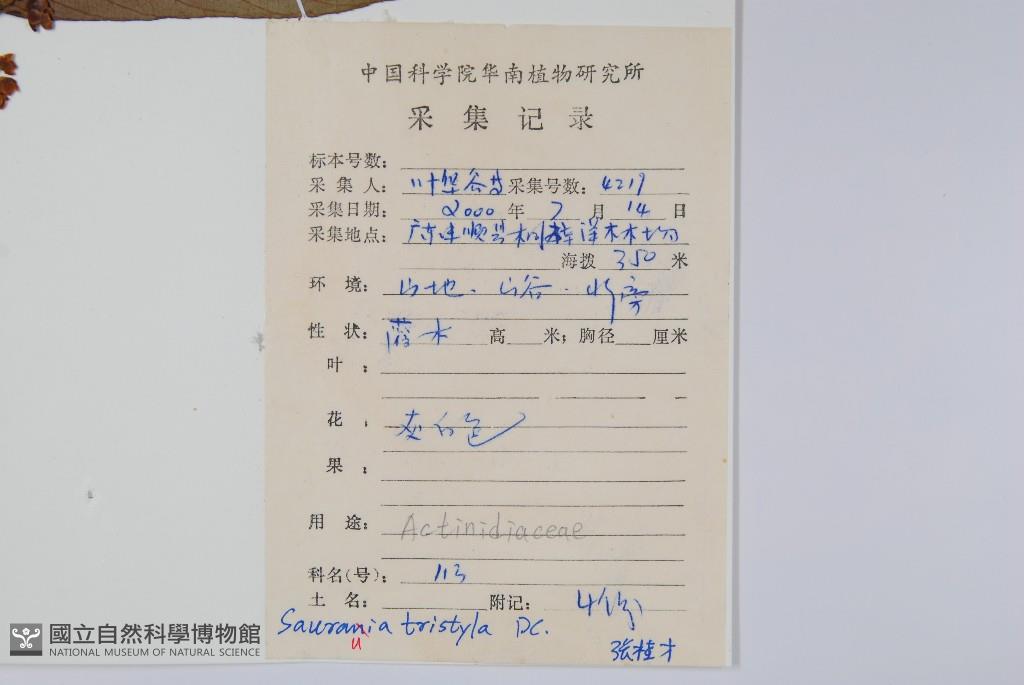 中国科学院华南植物研究所
采集记录
标本号数：
采集人：叶华谷等 采集号数：4219
采集日期：2000年7月14日
采集地点：广东 林场
海拨 350 米
环境：山地．山谷．
性状：灌木 高 米；胸径 厘米
叶：
花：灰白色
果：
用途：Actinidiaceae
科名(号)：113
土名： 附记：4份
Saurania tristyla DC.
u
张桂才
國立自然科學博物館
NATIONAL MUSEUM OF NATURAL SCIENCE